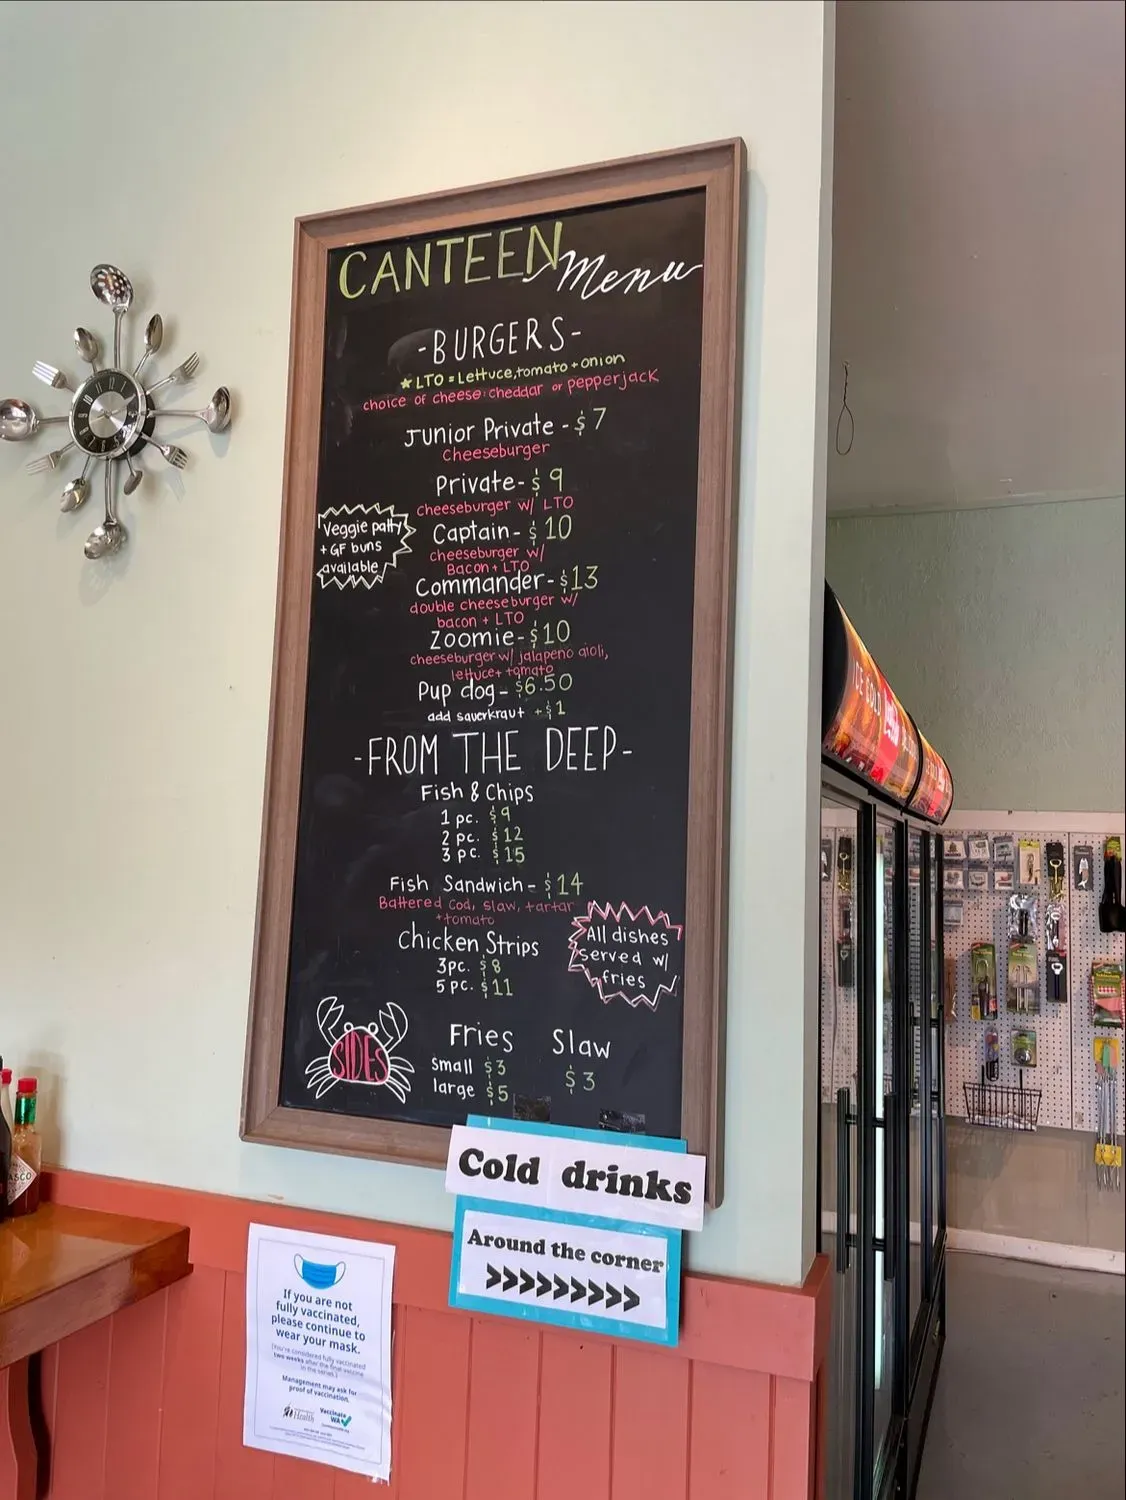 CANTEEN Menu
-BURGERS-
★ LTO = Lettuce, tomato + onion
choice of cheese: cheddar or pepperjack
Junior Private - $7
cheeseburger
Private - $9
cheeseburger w/ LTO
Captain - $10
cheeseburger w/
Bacon + LTO
Commander - $13
double cheeseburger w/
bacon + LTO
Zoomie - $10
cheeseburger w/ jalapeno aioli,
lettuce + tomato
Pup dog - $6.50
add sauerkraut + $1
Veggie patty
+ GF buns
available
-FROM THE DEEP-
Fish & Chips
1 pc. $9
2 pc. $12
3 pc. $15
Fish Sandwich - $14
Battered Cod, slaw, tartar
+ tomato
Chicken Strips
3pc. $8
5 pc. $11
All dishes
served w/
fries
SIDES
Fries
small $3
large $5
Slaw
$3
Cold drinks
Around the corner
>>>>>>>>>
If you are not
fully vaccinated,
please continue to
wear your mask.
(You're considered fully vaccinated
two weeks after the final vaccine
in the series.)
Management may ask for
proof of vaccination.
Health
Vaccinate
WA
ICE COLD